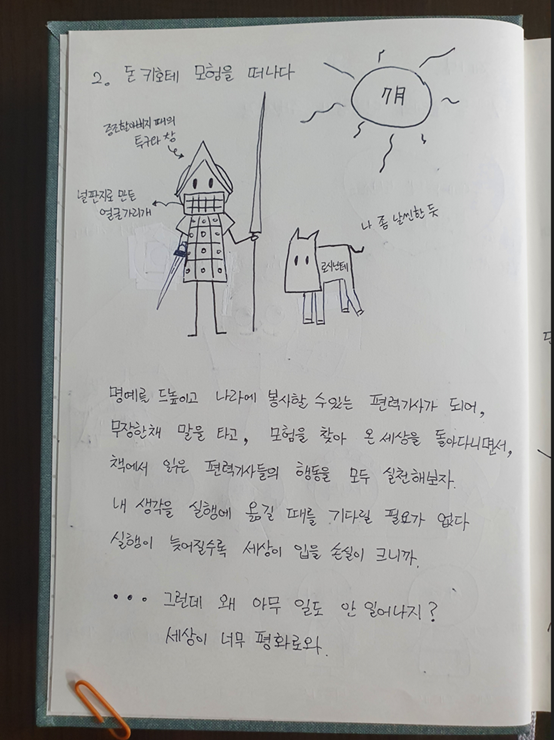 2. 돈키호테 모험을 떠나다
7月
증조할아버지 때의
투구와 창
널판지로 만든
얼굴가리개
나 좀 날씬한 듯
로시난테
명예를 드높이고 나라에 봉사할 수 있는 편력기사가 되어,
무장한채 말을 타고, 모험을 찾아 온 세상을 돌아다니면서,
책에서 읽은 편력기사들의 행동을 모두 실천해보자.
내 생각을 실행에 옮길 때를 기다릴 필요가 없다
실행이 늦어질수록 세상이 입을 손실이 크니까.
... 그런데 왜 아무 일도 안 일어나지?
세상이 너무 평화로와.